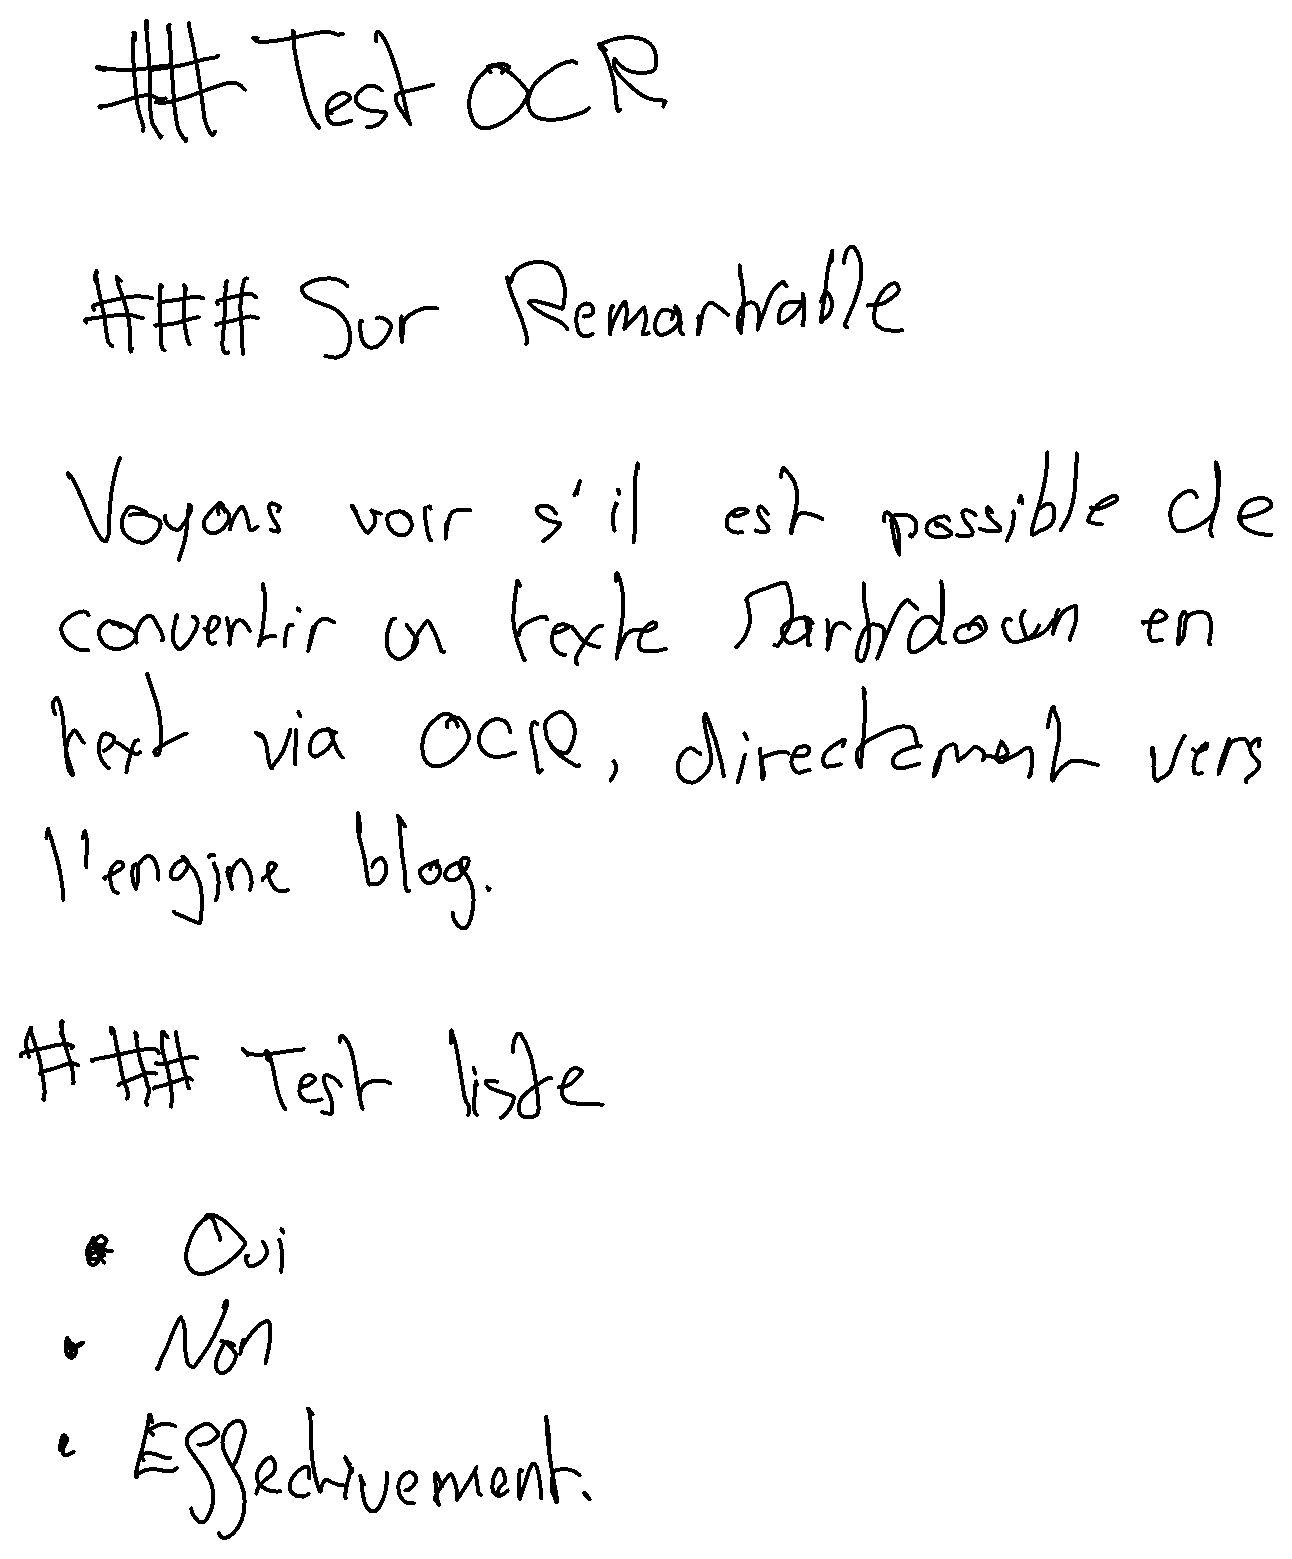 ## Test OCR
### Sur Remarkable
Voyons voir s'il est possible de
convertir un texte Markdown en
text via OCR, directement vers
l'engine blog.
### Test liste
• Oui
• Non
• Effectivement.